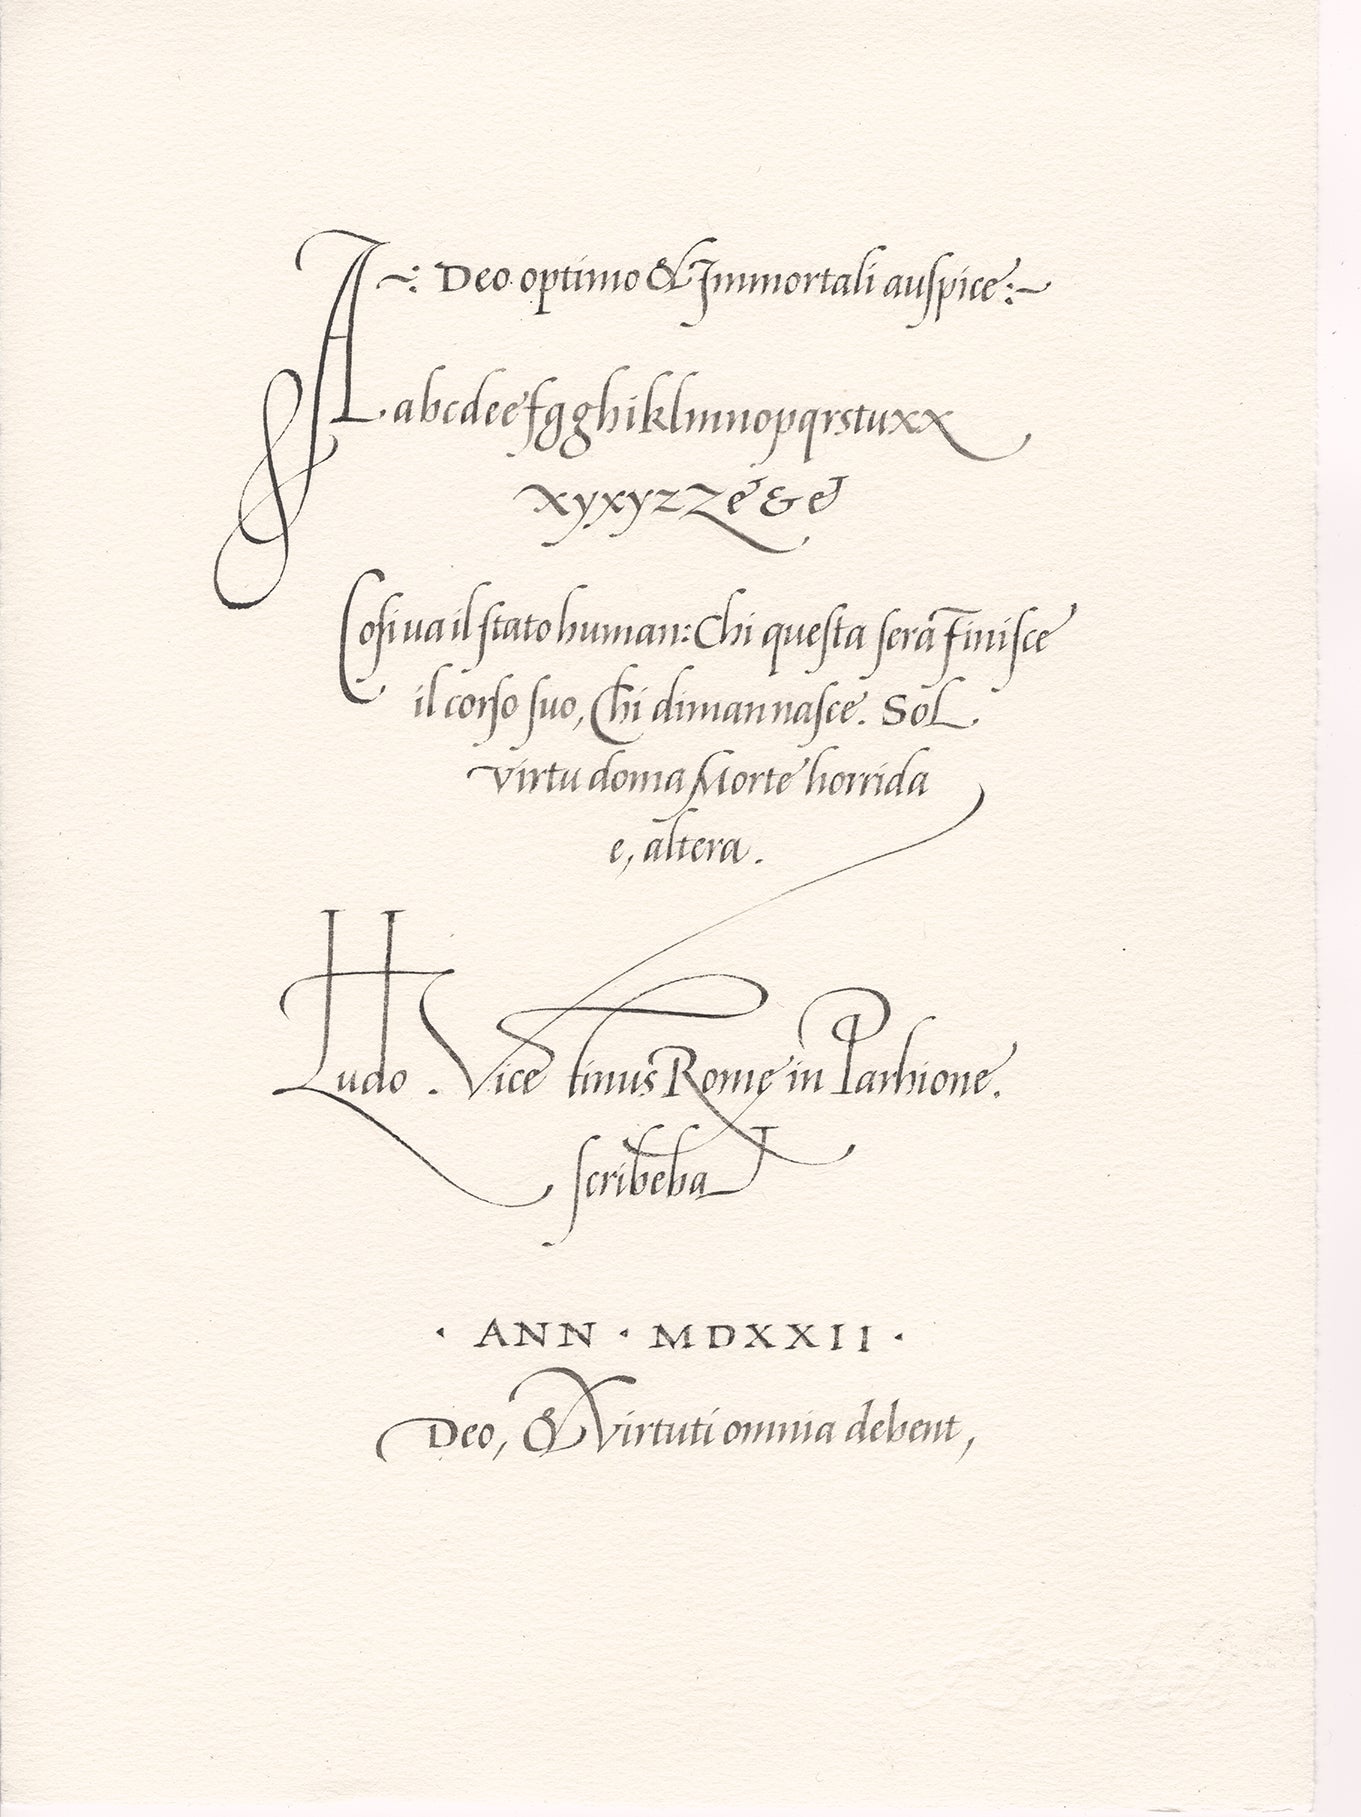 ~: Deo optimo & Immortali auspice :~
A. abcdeefgghiklmnopqrstuxx
xyxyzZ & & &
Cosi va il stato human: Chi questa sera finisce
il corso suo, Chi diman nasce. Sol
virtu doma Morte horrida
e, altera.
Ludo. Vicentinus Rome in Parhione.
scribebat
· ANN · MDXXII ·
Deo, & Virtuti omnia debent,